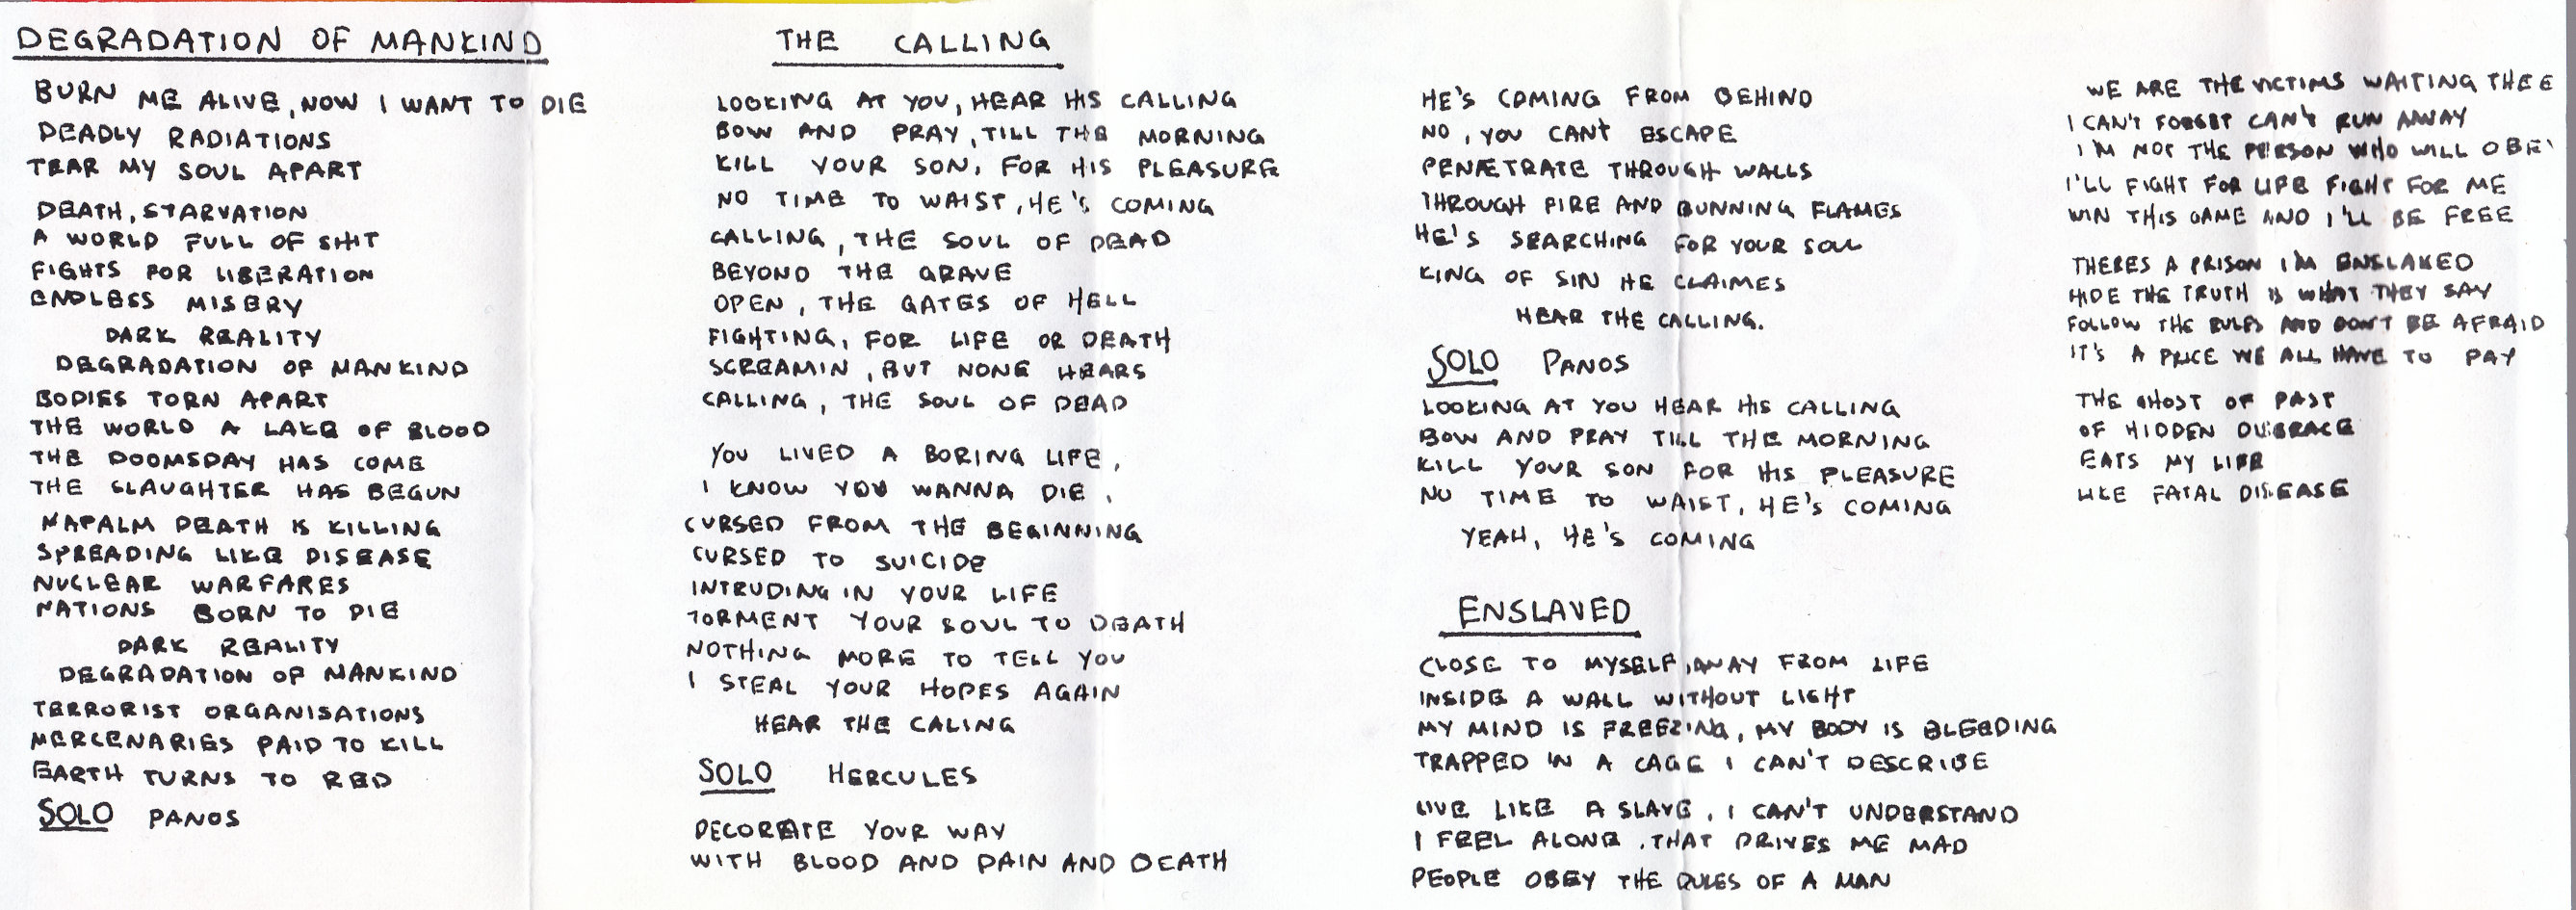 DEGRADATION OF MANKIND
BURN ME ALIVE, NOW I WANT TO DIE
DEADLY RADIATIONS
TEAR MY SOUL APART
DEATH, STARVATION
A WORLD FULL OF SHIT
FIGHTS FOR LIBERATION
ENDLESS MISERY
DARK REALITY
DEGRADATION OF MANKIND
BODIES TORN APART
THE WORLD A LAKE OF BLOOD
THE DOOMSDAY HAS COME
THE SLAUGHTER HAS BEGUN
NAPALM DEATH IS KILLING
SPREADING LIKE DISEASE
NUCLEAR WARFARES
NATIONS BORN TO DIE
DARK REALITY
DEGRADATION OF MANKIND
TERRORIST ORGANISATIONS
MERCENARIES PAID TO KILL
EARTH TURNS TO RED
SOLO PANOS
THE CALLING
LOOKING AT YOU, HEAR HIS CALLING
BOW AND PRAY, TILL THE MORNING
KILL YOUR SON, FOR HIS PLEASURE
NO TIME TO WAIST, HE'S COMING
CALLING, THE SOUL OF DEAD
BEYOND THE GRAVE
OPEN, THE GATES OF HELL
FIGHTING, FOR LIFE OR DEATH
SCREAMIN, BUT NONE HEARS
CALLING, THE SOUL OF DEAD
YOU LIVED A BORING LIFE,
I KNOW YOU WANNA DIE,
CURSED FROM THE BEGINNING
CURSED TO SUICIDE
INTRUDING IN YOUR LIFE
TORMENT YOUR SOUL TO DEATH
NOTHING MORE TO TELL YOU
I STEAL YOUR HOPES AGAIN
HEAR THE CALING
SOLO HERCULES
DECORATE YOUR WAY
WITH BLOOD AND PAIN AND DEATH
HE'S COMING FROM BEHIND
NO, YOU CAN'T ESCAPE
PENETRATE THROUGH WALLS
THROUGH FIRE AND BUNNING FLAMES
HE'S SEARCHING FOR YOUR SOUL
KING OF SIN HE CLAIMES
HEAR THE CALLING.
SOLO PANOS
LOOKING AT YOU HEAR HIS CALLING
BOW AND PRAY TILL THE MORNING
KILL YOUR SON FOR HIS PLEASURE
NO TIME TO WAIST, HE'S COMING
YEAH, HE'S COMING
ENSLAVED
CLOSE TO MYSELF, AWAY FROM LIFE
INSIDE A WALL WITHOUT LIGHT
MY MIND IS FREEZING, MY BODY IS BLEEDING
TRAPPED IN A CAGE I CAN'T DESCRIBE
LIVE LIKE A SLAVE, I CAN'T UNDERSTAND
I FEEL ALONE, THAT DRIVES ME MAD
PEOPLE OBEY THE RULES OF A MAN
WE ARE THE VICTIMS WAITING THE E
I CAN'T FORGET CAN'T RUN AWAY
I'M NOT THE PERSON WHO WILL OBEY
I'LL FIGHT FOR LIFE FIGHT FOR ME
WIN THIS GAME AND I'LL BE FREE
THERES A PRISON I'M ENSLAKED
HIDE THE TRUTH IS WHAT THEY SAY
FOLLOW THE RULES AND DON'T BE AFRAID
IT'S A PRICE WE ALL HAVE TO PAY
THE GHOST OF PAST
OF HIDDEN DISGRACE
EATS MY LIFE
LIKE FATAL DISEASE